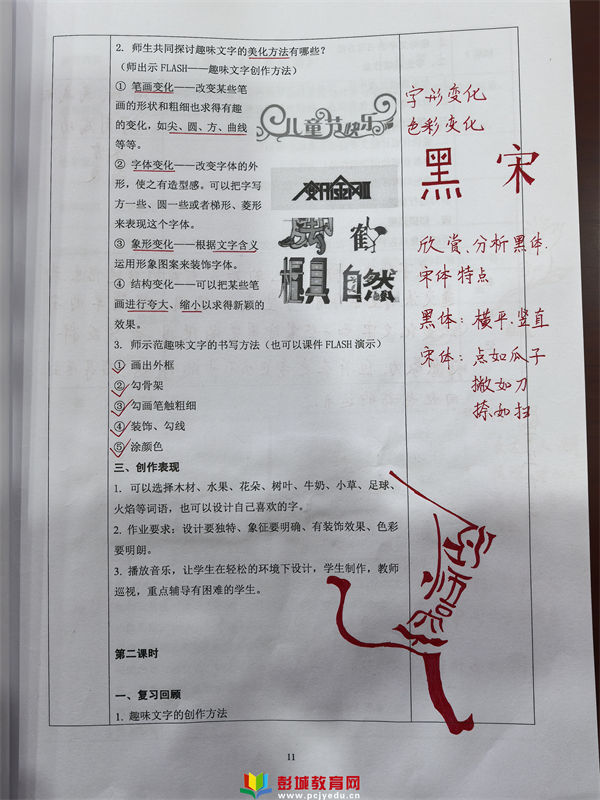 2. 师生共同探讨趣味文字的美化方法有哪些?
(师出示 FLASH——趣味文字创作方法)
① 笔画变化——改变某些笔
画的形状和粗细也求得有趣
的变化,如尖、圆、方、曲线
等等。
儿童节快乐
② 字体变化——改变字体的外
形,使之有造型感。可以把字写
方一些、圆一些或者梯形、菱形
来表现这个字体。
③ 象形变化——根据文字含义
运用形象图案来装饰字体。
脚 鹤
④ 结构变化——可以把某些笔
画进行夸大、缩小以求得新颖的
效果。
框具 自然
3. 师示范趣味文字的书写方法(也可以课件 FLASH 演示)
① 画出外框
② 勾骨架
③ 勾画笔触粗细
④ 装饰、勾线
⑤ 涂颜色
三、创作表现
1. 可以选择木材、水果、花朵、树叶、牛奶、小草、足球、
火焰等词语,也可以设计自己喜欢的字。
2. 作业要求:设计要独特、象征要明确、有装饰效果、色彩
要明朗。
3. 播放音乐,让学生在轻松的环境下设计,学生制作,教师
巡视,重点辅导有困难的学生。
第二课时
一、复习回顾
1. 趣味文字的创作方法
字形变化
色彩变化
黑 宋
欣赏、分析黑体、
宋体特点
黑体:横平.竖直
宋体:点如瓜子
撇如刀
捺如扫
11
彭城教育网
www.pcjyedu.cn